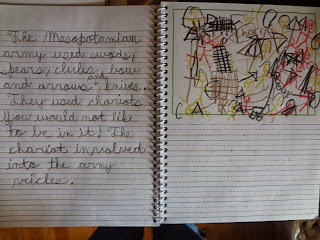 The Mesopotamian
army used swods,
spears, clules, bow
and
and arrows, knives.
They used chariots.
You would not like
to be in it! The
chariot involved
into the army
vehicles.